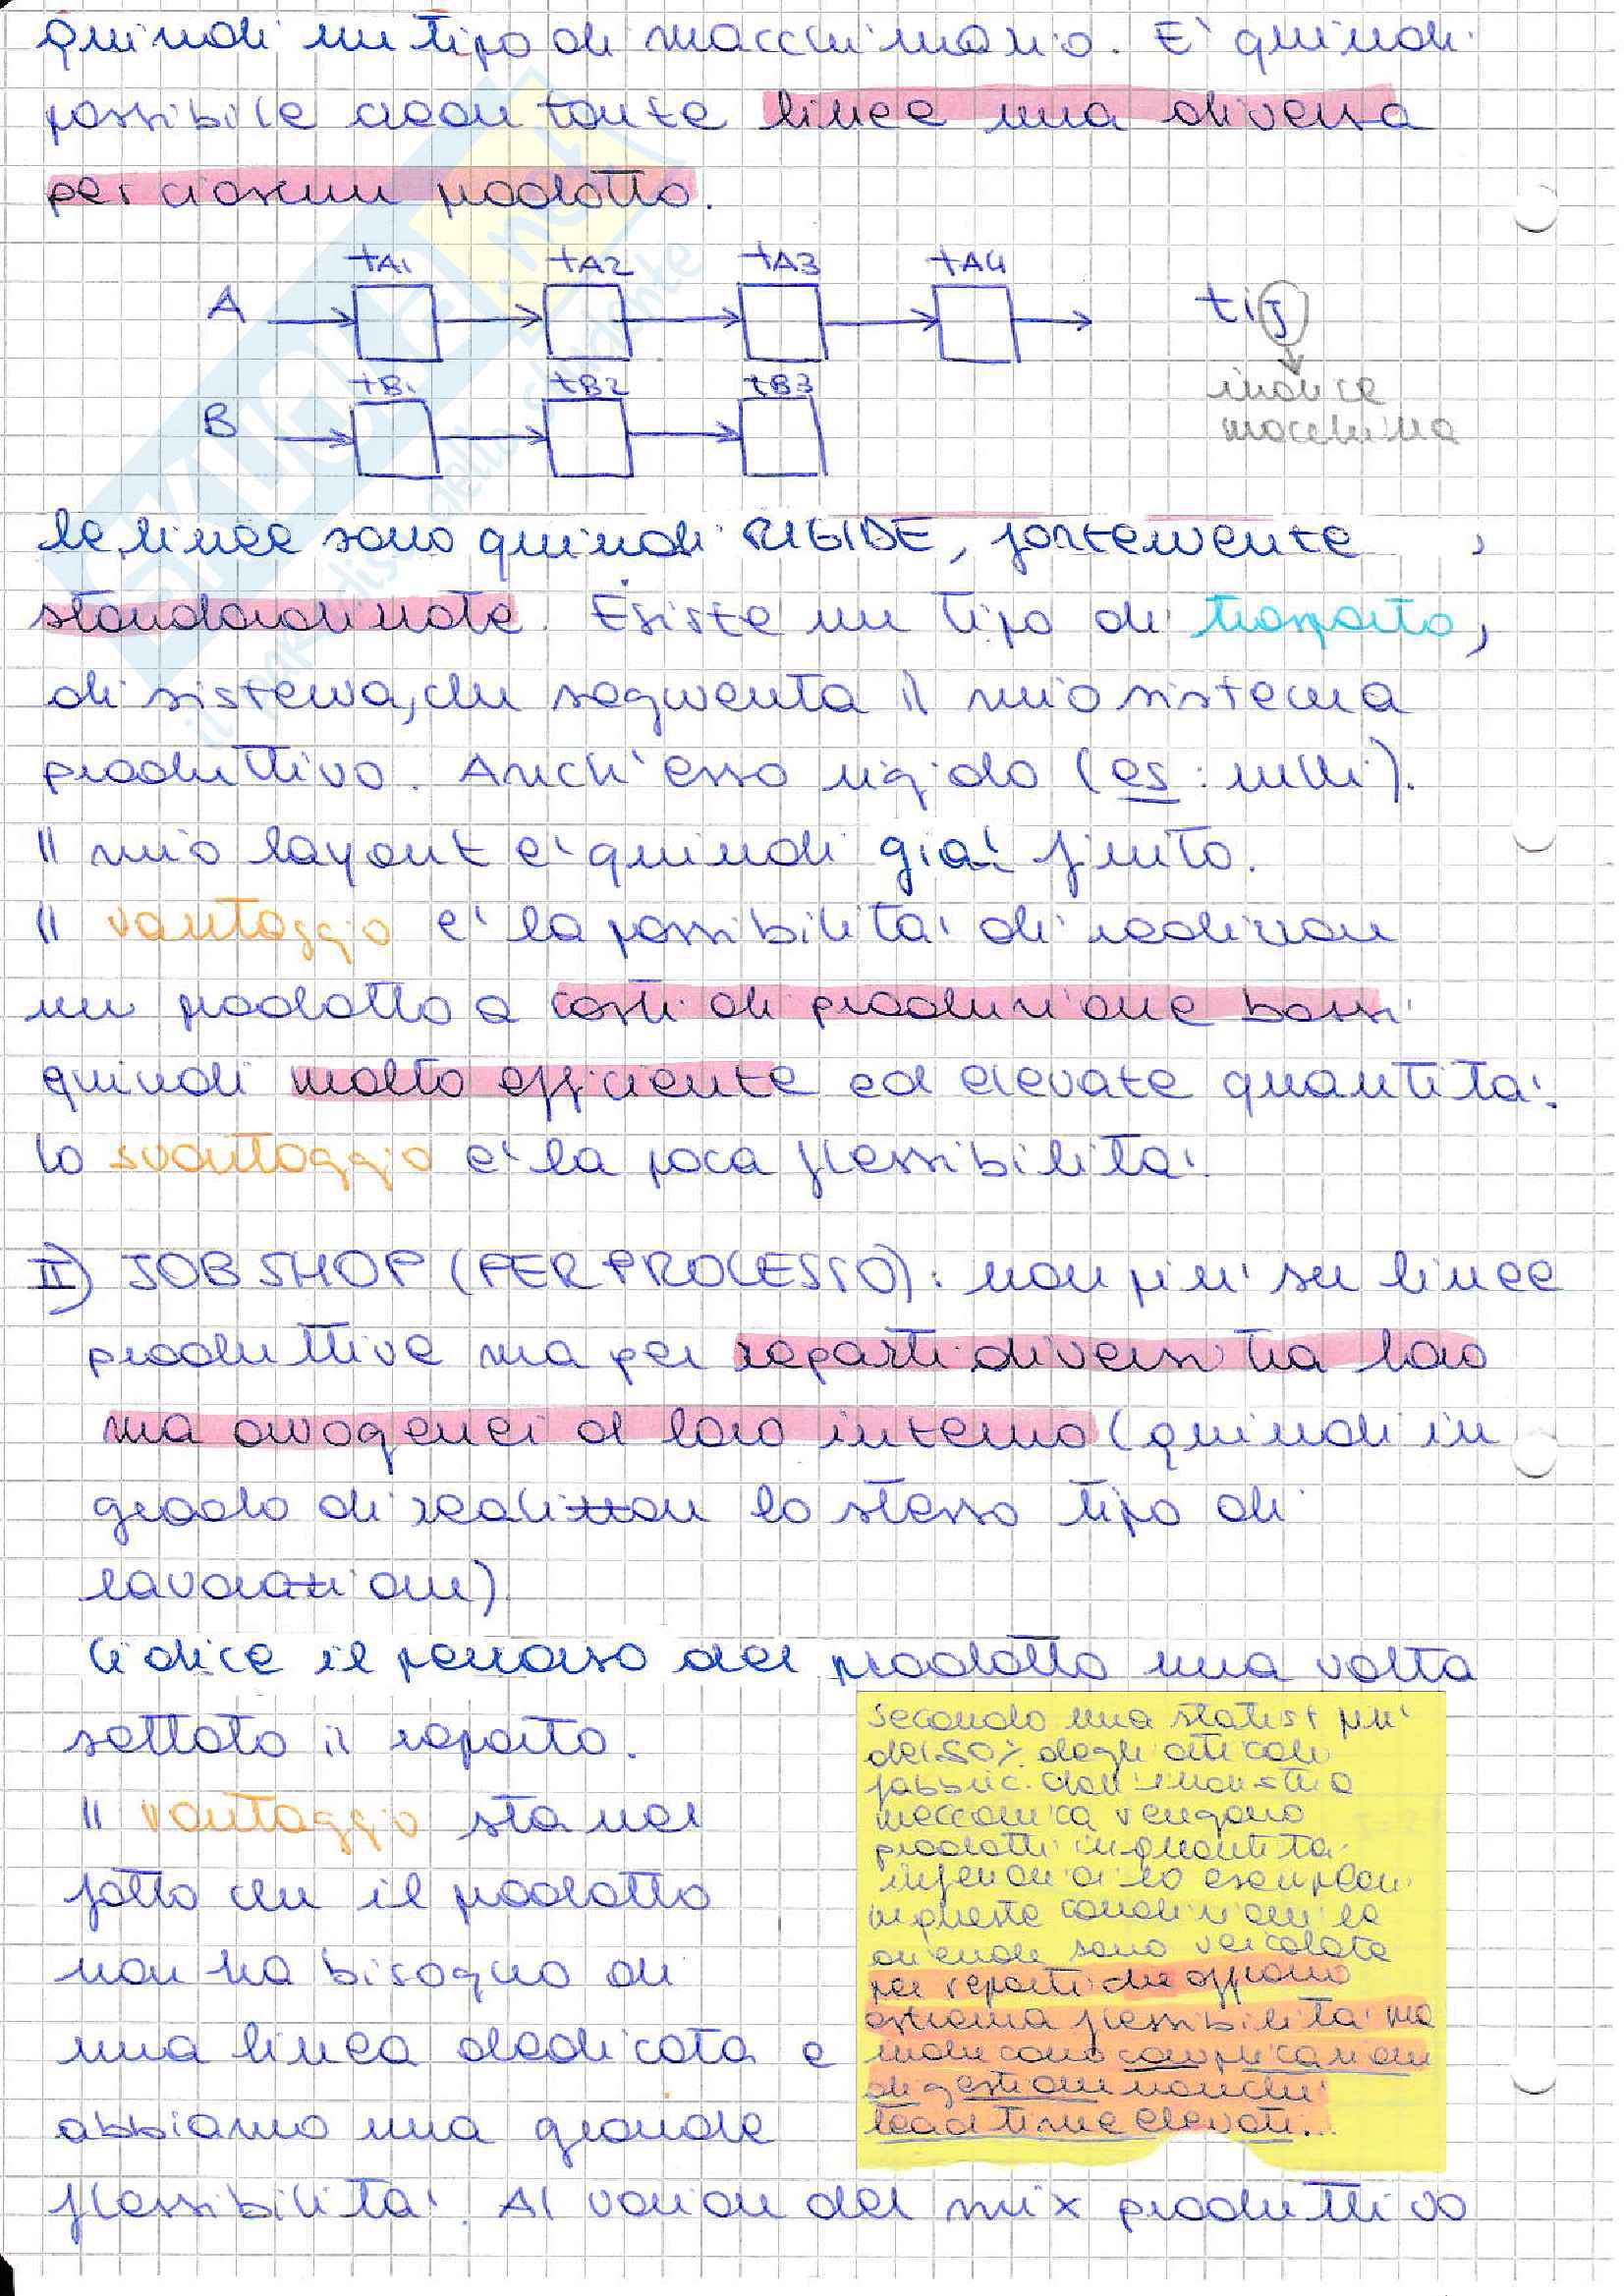 quindi un tipo di macchinario. E' quindi
possibile creare tante linee una diversa
per ciascun prodotto.
tA1 tA2 tA3 tA4
A
tij
indice
macchina
tB1 tB2 tB3
B
le linee sono quindi RIGIDE, fortemente
standardizzate. Esiste un tipo di trasporto,
di sistema, che segmenta il mio sistema
produttivo. Anch'esso rigido (es: rulli).
Il mio layout e' quindi gia' finito.
Il vantaggio e' la possibilita' di realizzare
un prodotto a costi di produzione bassi
quindi molto efficiente ed elevate quantita'.
lo svantaggio e' la poca flessibilita'.
II) JOB SHOP (PER PROCESSO): non piu' su linee
produttive ma per reparti diversi tra loro
ma omogenei al loro interno (quindi in
grado di realizzare lo stesso tipo di
lavorazioni)
Ci dice il percorso del prodotto una volta
settato il reparto.
Il vantaggio sta nel
fatto che il prodotto
non ha bisogno di
una linea dedicata e
abbiamo una grande
flessibilita'. Al variare del mix produttivo
Secondo una statist piu'
del 50% degli articoli
fabbric. dall'industria
meccanica vengono
prodotti in quantita'
inferiori ai 50 esemplari
in queste condizioni le
aziende sono veicolate
per reparti che offrono
estrema flessibilita' ma
inducono complicazioni
di gestione nonche'
lead time elevati.